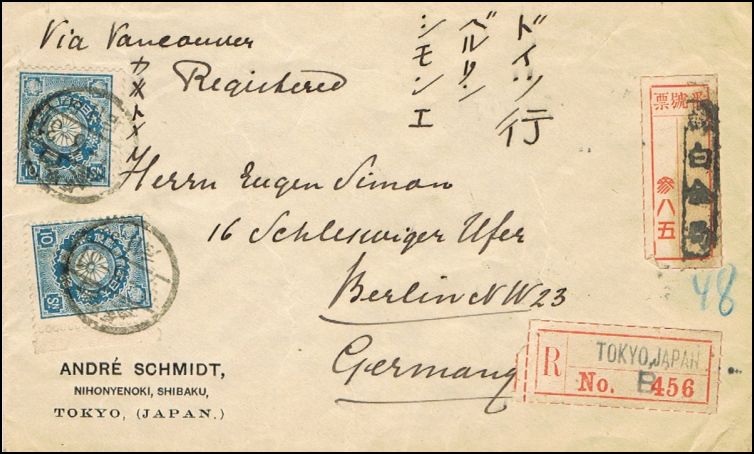 Via Vancouver
Registered
ドイツ行
ベルリン
シモンエ
Herrn Eugen Simon
16 Schleswiger Ufer
Berlin NW 23
Germany
ANDRÉ SCHMIDT,
NIHONYENOKI, SHIBAKU,
TOKYO, (JAPAN.)
番號票
白金
参八五
48
R
TOKYO, JAPAN
No. B 456
10 Sn
10 Sn